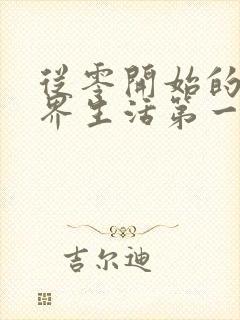 從零開始的
界生活第一
吉尔迪